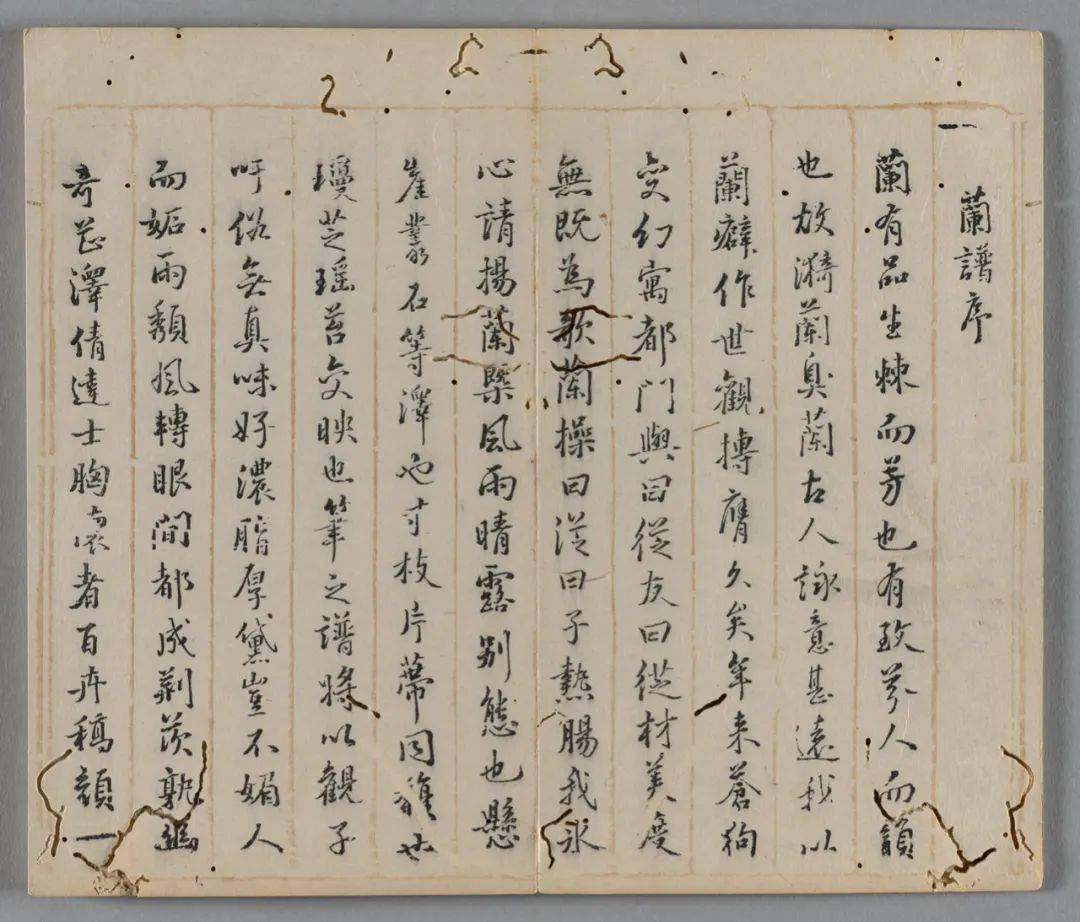 蘭譜序
蘭有品生棘而芳也有致萎人而韻
也故漪蘭臭蘭古人詠意甚遠我以
蘭癖作世觀摶膺久矣年来蒼狗
變幻寓都門與曰從友曰從材美度
無既為歌蘭操曰從曰子熱腸我冰
心請揚蘭槩風雨晴露别態也懸
崖叢石等澤也寸枝片蒂同雜せ
瓊芝瑶苔交映也筆之譜將以觀子
吁俗無真味好濃脂厚黛豈不媚人
而妬雨頽風轉眼間都成荆茨孰
奇芯澤倩達士胸襟者百卉稿顔一